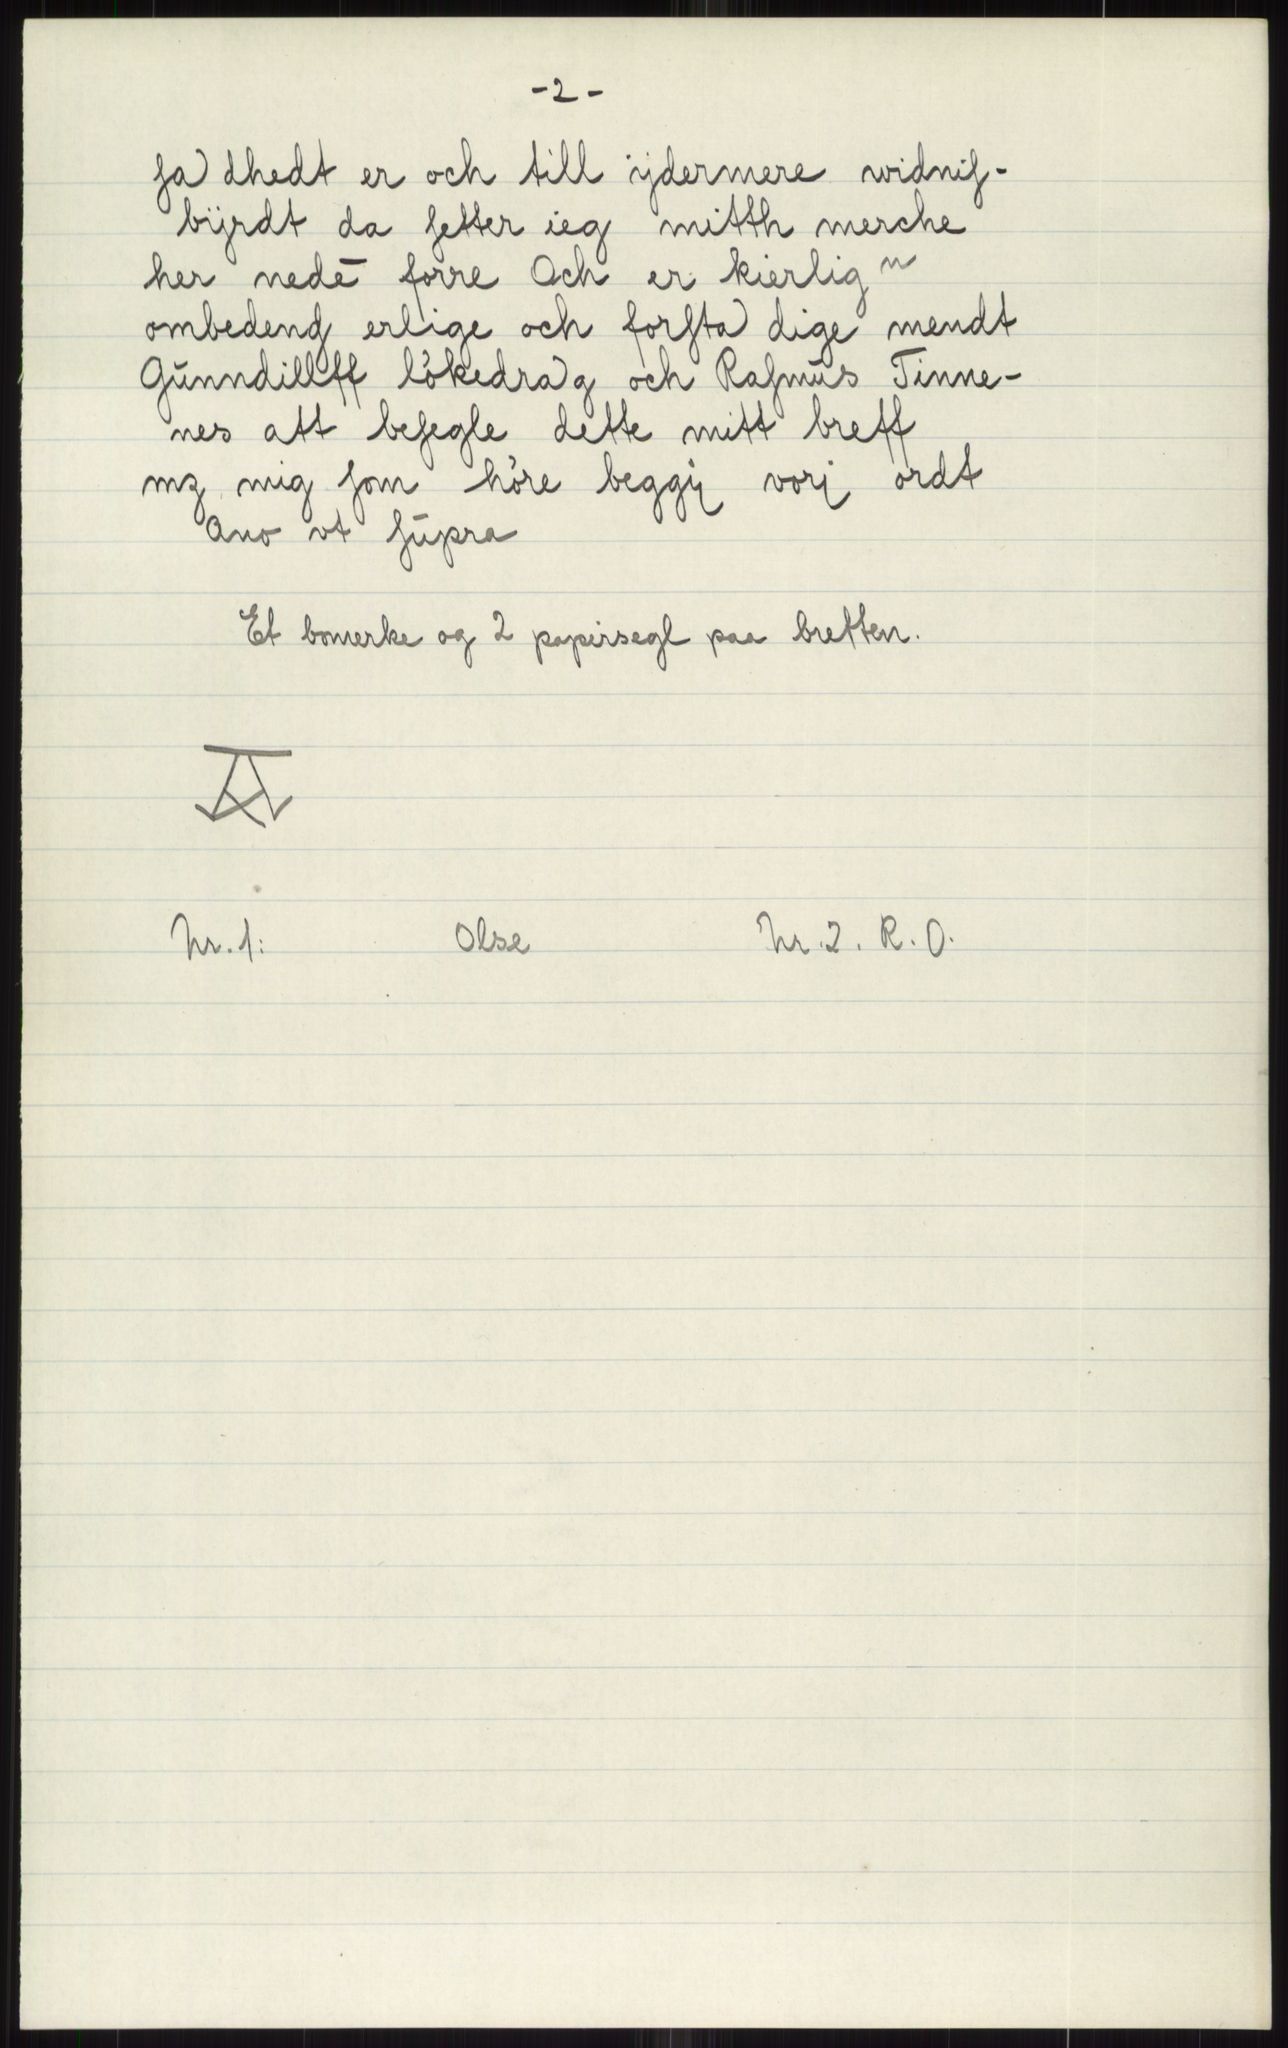 -2-
ſa dhedt er och till ijdermere widniſ-
bijrdt da ſetter ieg mitth merche
her nedē förre Och er kierlig n
ombedend erlige och forſta dige mendt
Gŭnndillff lökedrag och Raſmŭs Tinne-
nes att beſegle dette mitt breff
mz mig ſom höre beggij vorj ordt
Ano vt ſŭpra
Et bomerke og 2 papirsegl paa bretten.
Nr. 1: Olse Nr. 2. R. O.